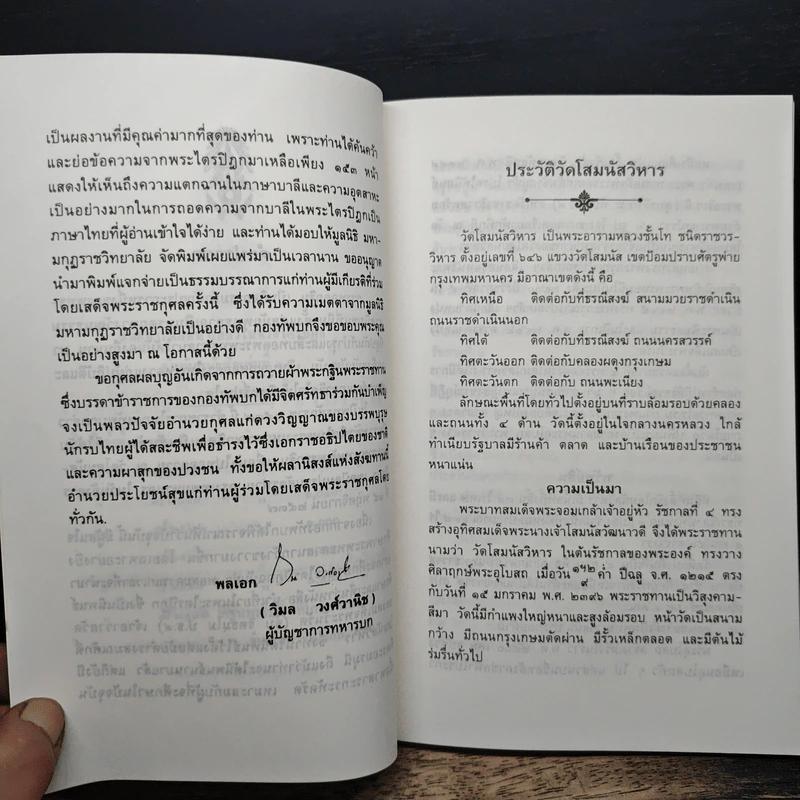 เป็นผลงานที่มีคุณค่ามากที่สุดของท่าน เพราะท่านได้ค้นคว้า
และย่อข้อความจากพระไตรปิฎกมาเหลือเพียง ๑๕๓ หน้า
แสดงให้เห็นถึงความแตกฉานในภาษาบาลีและความอุตสาหะ
เป็นอย่างมากในการถอดความจากบาลีในพระไตรปิฎกเป็น
ภาษาไทยที่ผู้อ่านเข้าใจได้ง่าย และท่านได้มอบให้มูลนิธิ มหา-
มกุฏราชวิทยาลัย จัดพิมพ์เผยแพร่มาเป็นเวลานาน ขออนุญาต
นำมาพิมพ์แจกจ่ายเป็นธรรมบรรณาการแก่ท่านผู้มีเกียรติที่ร่วม
โดยเสด็จพระราชกุศลครั้งนี้ ซึ่งได้รับความเมตตาจากมูลนิธิ
มหามกุฏราชวิทยาลัยเป็นอย่างดี กองทัพบกจึงขอขอบพระคุณ
เป็นอย่างสูงมา ณ โอกาสนี้ด้วย
ขอกุศลผลบุญอันเกิดจากการถวายผ้าพระกฐินพระราชทาน
ซึ่งบรรดาข้าราชการของกองทัพบกได้มีจิตศรัทธาร่วมกันบำเพ็ญ
จงเป็นพลวปัจจัยอำนวยกุศลแก่ดวงวิญญาณของบรรพบุรุษ
นักรบไทยผู้ได้สละชีพเพื่อธำรงไว้ซึ่งเอกราชอธิปไตยของชาติ
และความผาสุกของปวงชน ทั้งขอให้ผลานิสงส์แห่งสังฆทานนี้
อำนวยประโยชน์สุขแก่ท่านผู้ร่วมโดยเสด็จพระราชกุศลโดย
ทั่วกัน.
พลเอก
( วิมล วงศ์วานิช )
ผู้บัญชาการทหารบก
ประวัติวัดโสมนัสวิหาร
วัดโสมนัสวิหาร เป็นพระอารามหลวงชั้นโท ชนิดราชวร-
วิหาร ตั้งอยู่เลขที่ ๖๔๖ แขวงวัดโสมนัส เขตป้อมปราบศัตรูพ่าย
กรุงเทพมหานคร มีอาณาเขตดังนี้ คือ
ทิศเหนือ ติดต่อกับที่ธรณีสงฆ์ สนามมวยราชดำเนิน
ถนนราชดำเนินนอก
ทิศใต้ ติดต่อกับที่ธรณีสงฆ์ ถนนนครสวรรค์
ทิศตะวันออก ติดต่อกับคลองผดุงกรุงเกษม
ทิศตะวันตก ติดต่อกับ ถนนพะเนียง
ลักษณะพื้นที่โดยทั่วไปตั้งอยู่บนที่ราบล้อมรอบด้วยคลอง
และถนนทั้ง ๔ ด้าน วัดนี้ตั้งอยู่ในใจกลางนครหลวง ใกล้
ทำเนียบรัฐบาลมีร้านค้า ตลาด และบ้านเรือนของประชาชน
หนาแน่น
ความเป็นมา
พระบาทสมเด็จพระจอมเกล้าเจ้าอยู่หัว รัชกาลที่ ๔ ทรง
สร้างอุทิศสมเด็จพระนางเจ้าโสมนัสวัฒนาวดี จึงได้พระราชทาน
นามว่า วัดโสมนัสวิหาร ในต้นรัชกาลของพระองค์ ทรงวาง
ศิลาฤกษ์พระอุโบสถ เมื่อวัน ค่ำ ปีฉลู จ.ศ. ๑๒๑๕ ตรง
กับวันที่ ๑๕ มกราคม พ.ศ. ๒๓๙๖ พระราชทานเป็นวิสุงคาม-
สีมา วัดนี้มีกำแพงใหญ่หนาและสูงล้อมรอบ หน้าวัดเป็นสนาม
กว้าง มีถนนกรุงเกษมตัดผ่าน มีรั้วเหล็กตลอด และมีต้นไม้
ร่มรื่นทั่วไป